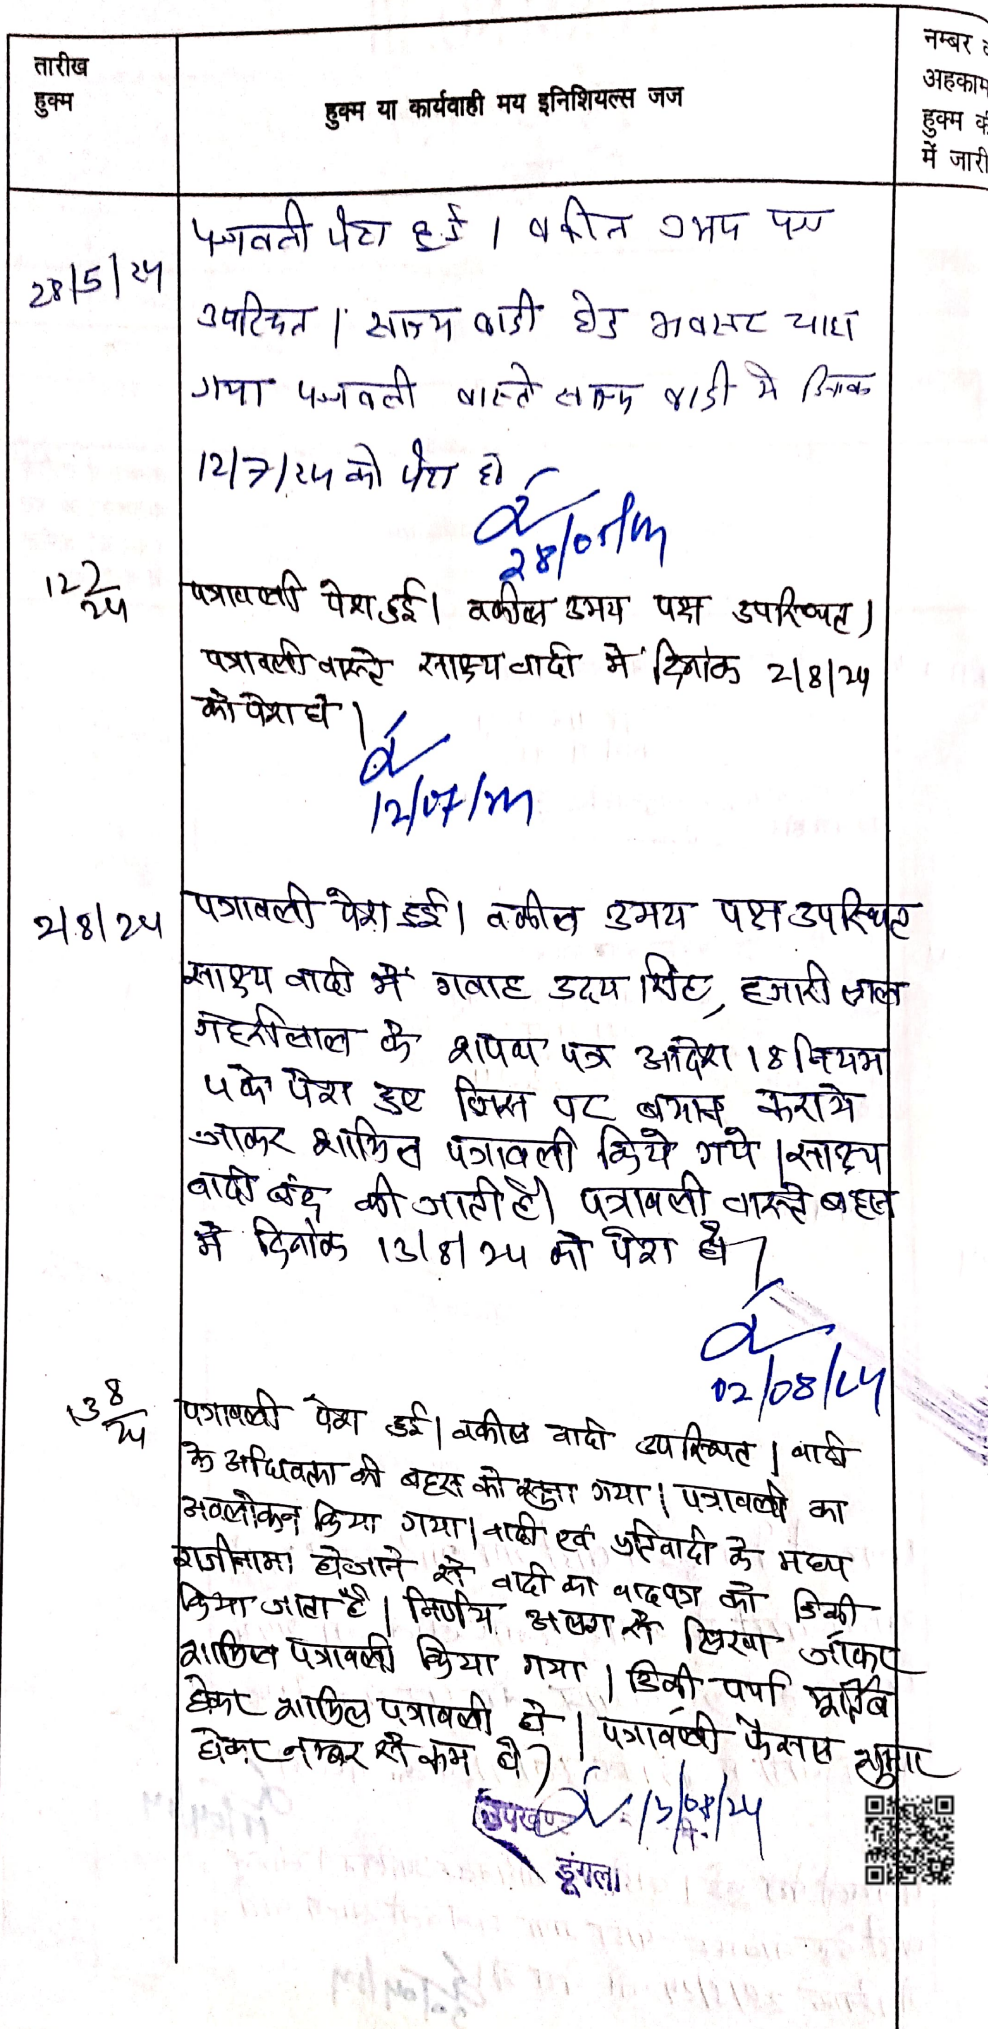 तारीख
हुक्म
हुक्म या कार्यवाही मय इनिशियल्स जज
नम्बर
अहकाम
हुक्म की
में जारी
28/5/24
पत्रावली पेश हुई । वकील उभय पक्ष
उपस्थित । साक्ष्य वादी हेतु अवसर चाहा
गया पत्रावली वास्ते साक्ष्य वादी मे दिनांक
12/7/24 को पेश हो
28/05/24
12 7/24
पत्रावली पेश हुई । वकील उभय पक्ष उपस्थित ।
पत्रावली वास्ते साक्ष्य वादी में दिनांक 2/8/24
को पेश हो ।
12/07/24
2/8/24
पत्रावली पेश हुई । वकील उभय पक्ष उपस्थित
साक्ष्य वादी में गवाह उदय सिंह, हजारी लाल
के शपथ पत्र आदेश 18 नियम
4 के पेश हुए जिस पर बयान कराये
जाकर शामिल पत्रावली किये गये । साक्ष्य
वादी बंद की जाती है । पत्रावली वास्ते बहस
में दिनांक 13/8/24 को पेश हो
02/08/24
13 8/24
पत्रावली पेश हुई । वकील वादी उपस्थित । वादी
के अधिवक्ता की बहस को सुना गया । पत्रावली का
अवलोकन किया गया । वादी एवं प्रतिवादी के मध्य
राजीनामा होजाने से वादी का वादपत्र को डिक्री
किया जाता है । निर्णय अलग से लिखा जाकर
शामिल पत्रावली किया गया । डिक्री पर्चा मुर्तिब
होकर शामिल पत्रावली हो । पत्रावली फैसल शुमार
होकर नम्बर से कम हो
13/08/24
उपखण्ड
डूंगला